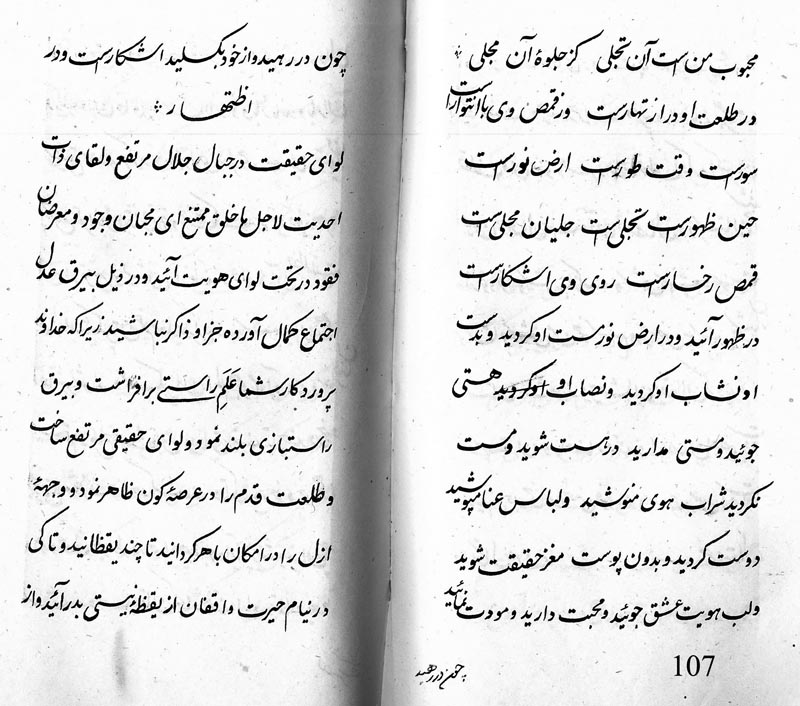 محبوب من است آن تجلی کز جلوهٔ آن مجلی
در طلعت او در از نهارست ور قمص وی با انتوارست
سورست وقت طورست ارض نورست
حین ظهورست تجلی‌ست جلیان مجلی‌ست
قمص رخسارست روی وی اشکارست
در ظهور آئید و در ارض نورست او گردید و بدست
او نشاب او گردید و نصاب او گردید هستی
جوئید و مستی مدارید درهست شوید و مست
نگردید شراب هوی منوشید ولباس عنا مپوشید
دوست گردید و بدون پوست مغز حقیقت شوید
ولب هویت عشق جوئید و محبت دارید و مودت نمائید
چون در رهید
107
چون در رهید و از خود بگسلید اشکارست ودر
اظهار
لوای حقیقت در جبال جلال مرتفع ولقای ذات
احدیت لاجل ما خلق ممتنع ای محبان وجود و معرضان
فقود در تحت لوای هویت آئید ودر ذیل بیرق عدل
اجتماع کمال آورده جز او ذاکر نباشید زیرا که خداوند
پروردکار شما علم راستی برافراشت و بیرق
راستبازی بلند نمود ولوای حقیقی مرتفع ساخت
وطلعت قدم را در عرصهٔ کون ظاهر نمود و وجههٔ
ازل را در امکان باهر گردانید تا چند یقظانید و تا کی
در نیام حیرت واقفان از یقظهٔ نیستی بدر آئید و از